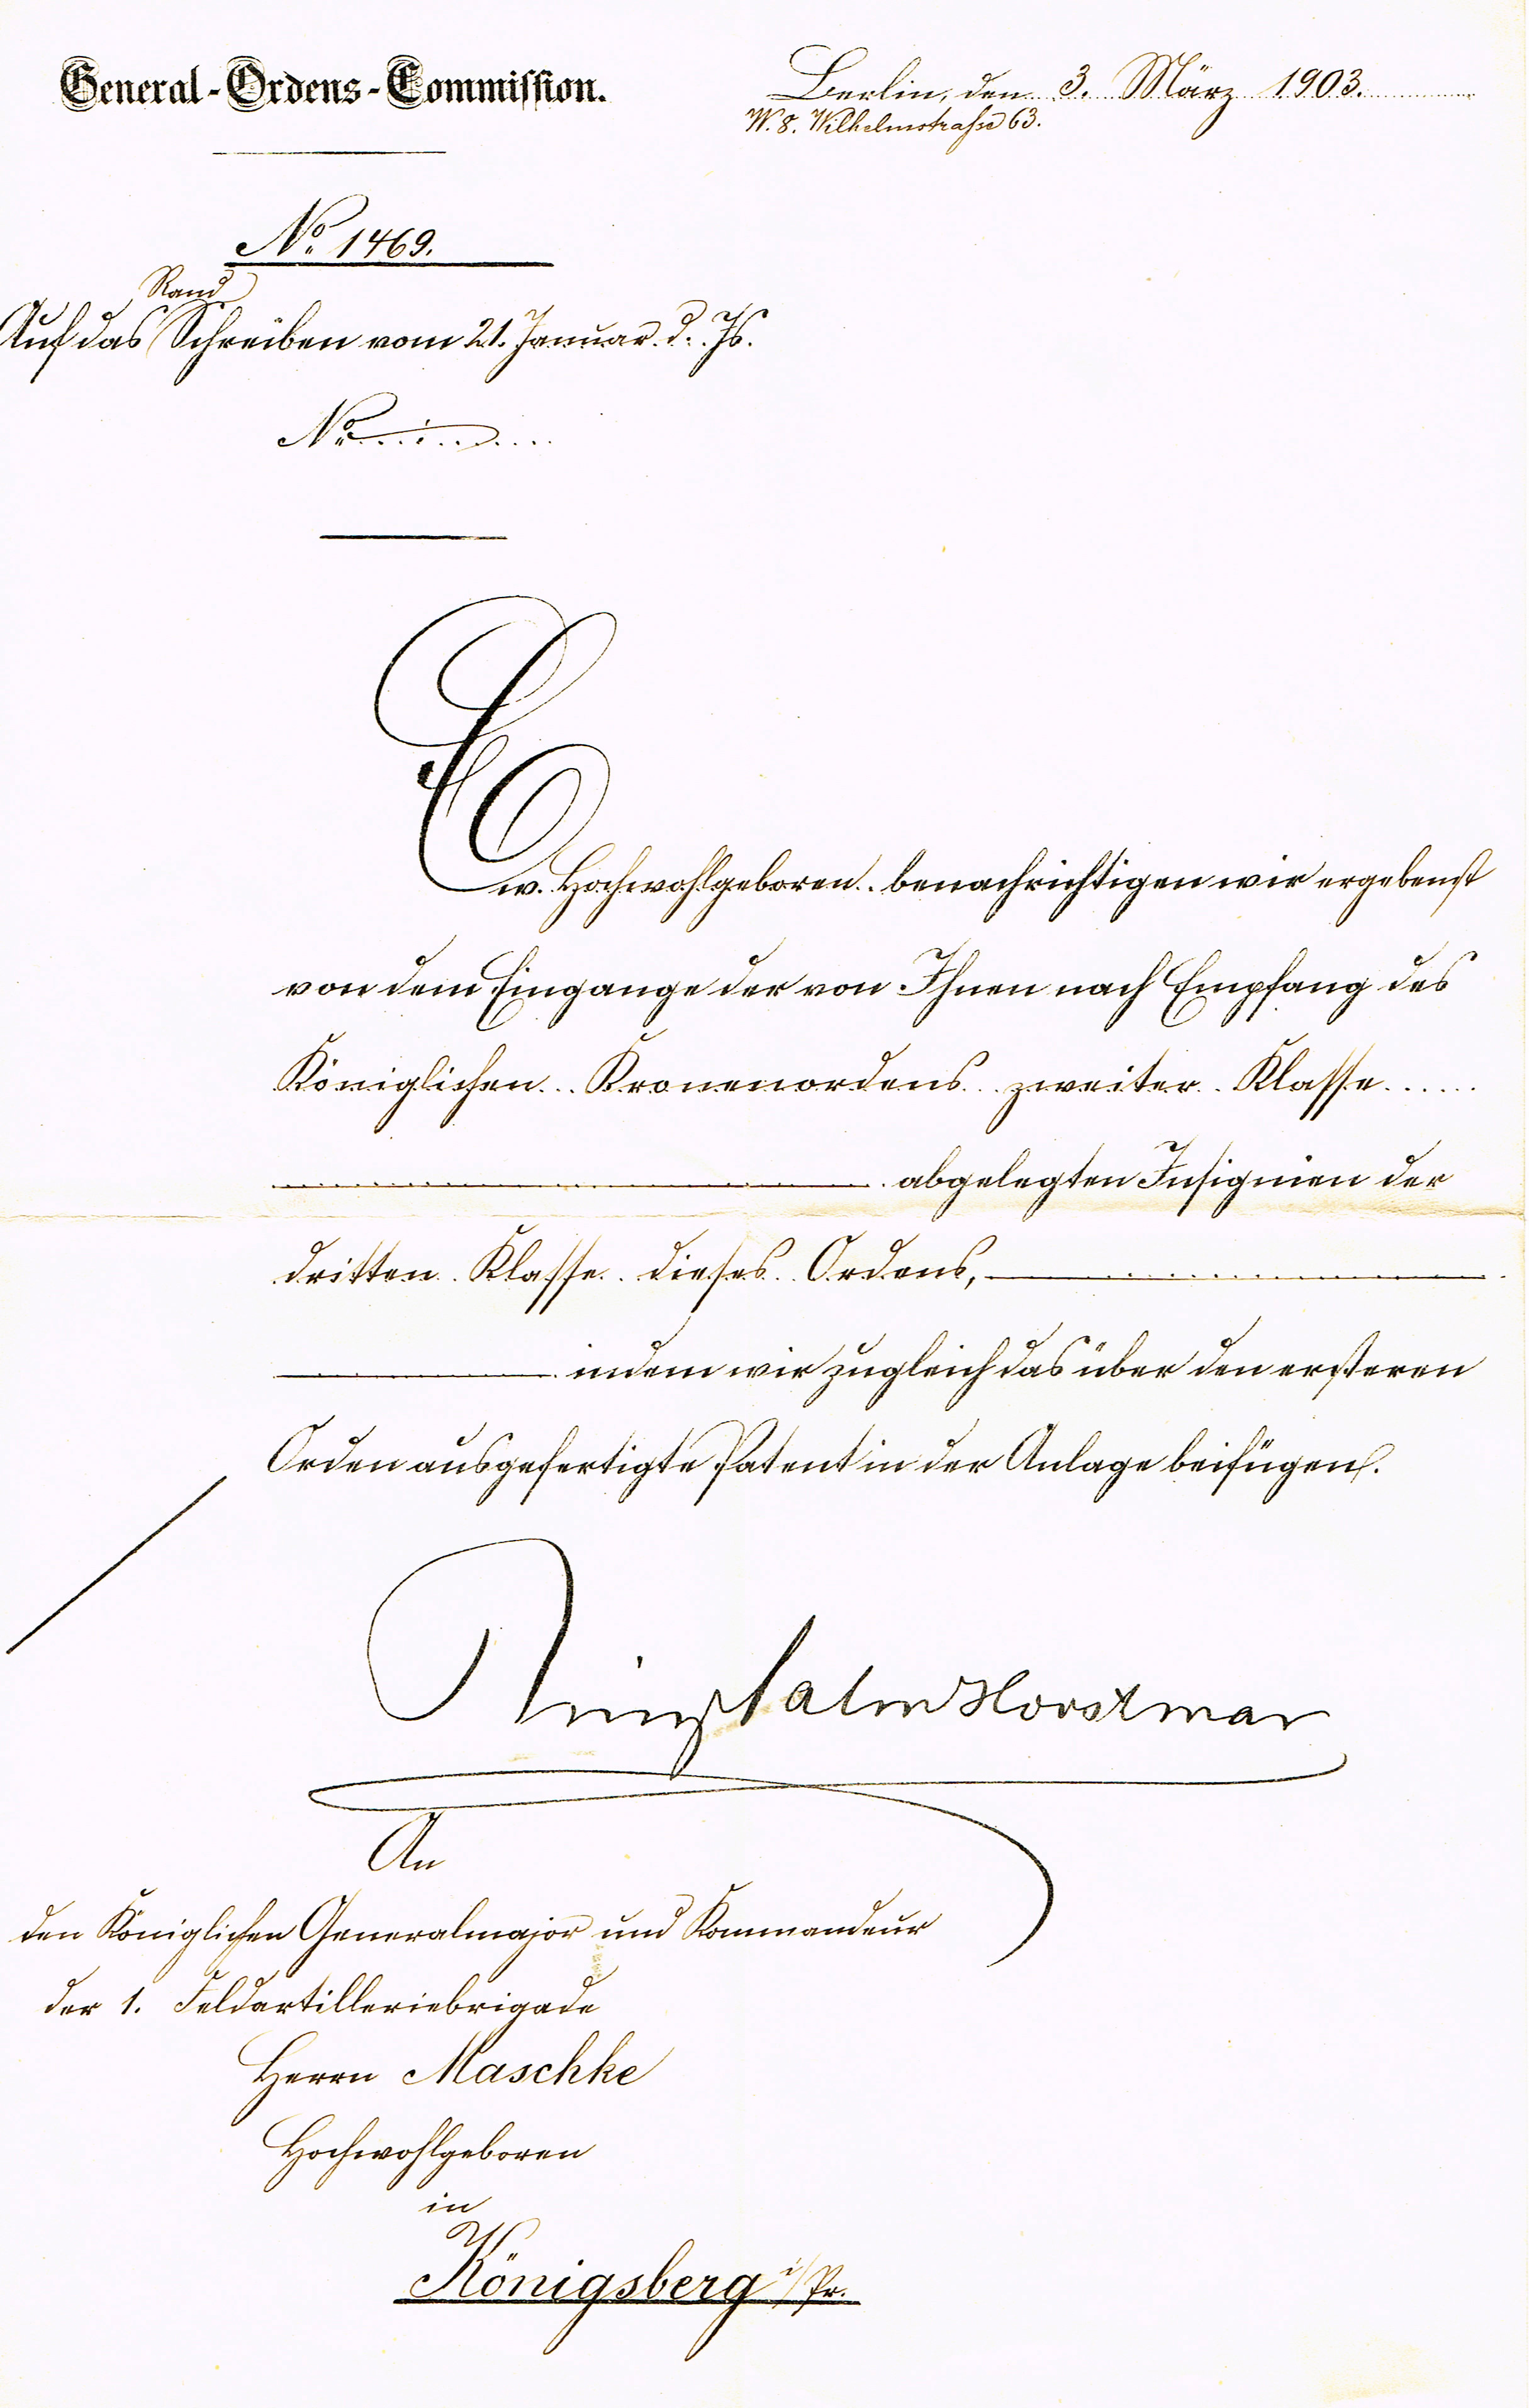 General-Ordens-Commission.
Berlin, den 3. März 1903.
W. 8. Wilhelmstrasse 63.
No. 1469.
Rand
Auf das Schreiben vom 21. Januar d. Js.
No.
Ew. Hochwohlgeboren benachrichtigen wir ergebenst
von dem Eingange der von Ihnen nach Empfang des
Königlichen Kronenordens zweiter Klasse
abgelegten Insignien der
dritten Klasse dieses Ordens,
indem wir zugleich das über den ersteren
Orden ausgefertigte Patent in der Anlage beifügen.
Prinz Salm Horstmar
An
den Königlichen Generalmajor und Kommandeur
der 1. Feldartilleriebrigade
Herrn Maschke
Hochwohlgeboren
in
Königsberg i/Pr.